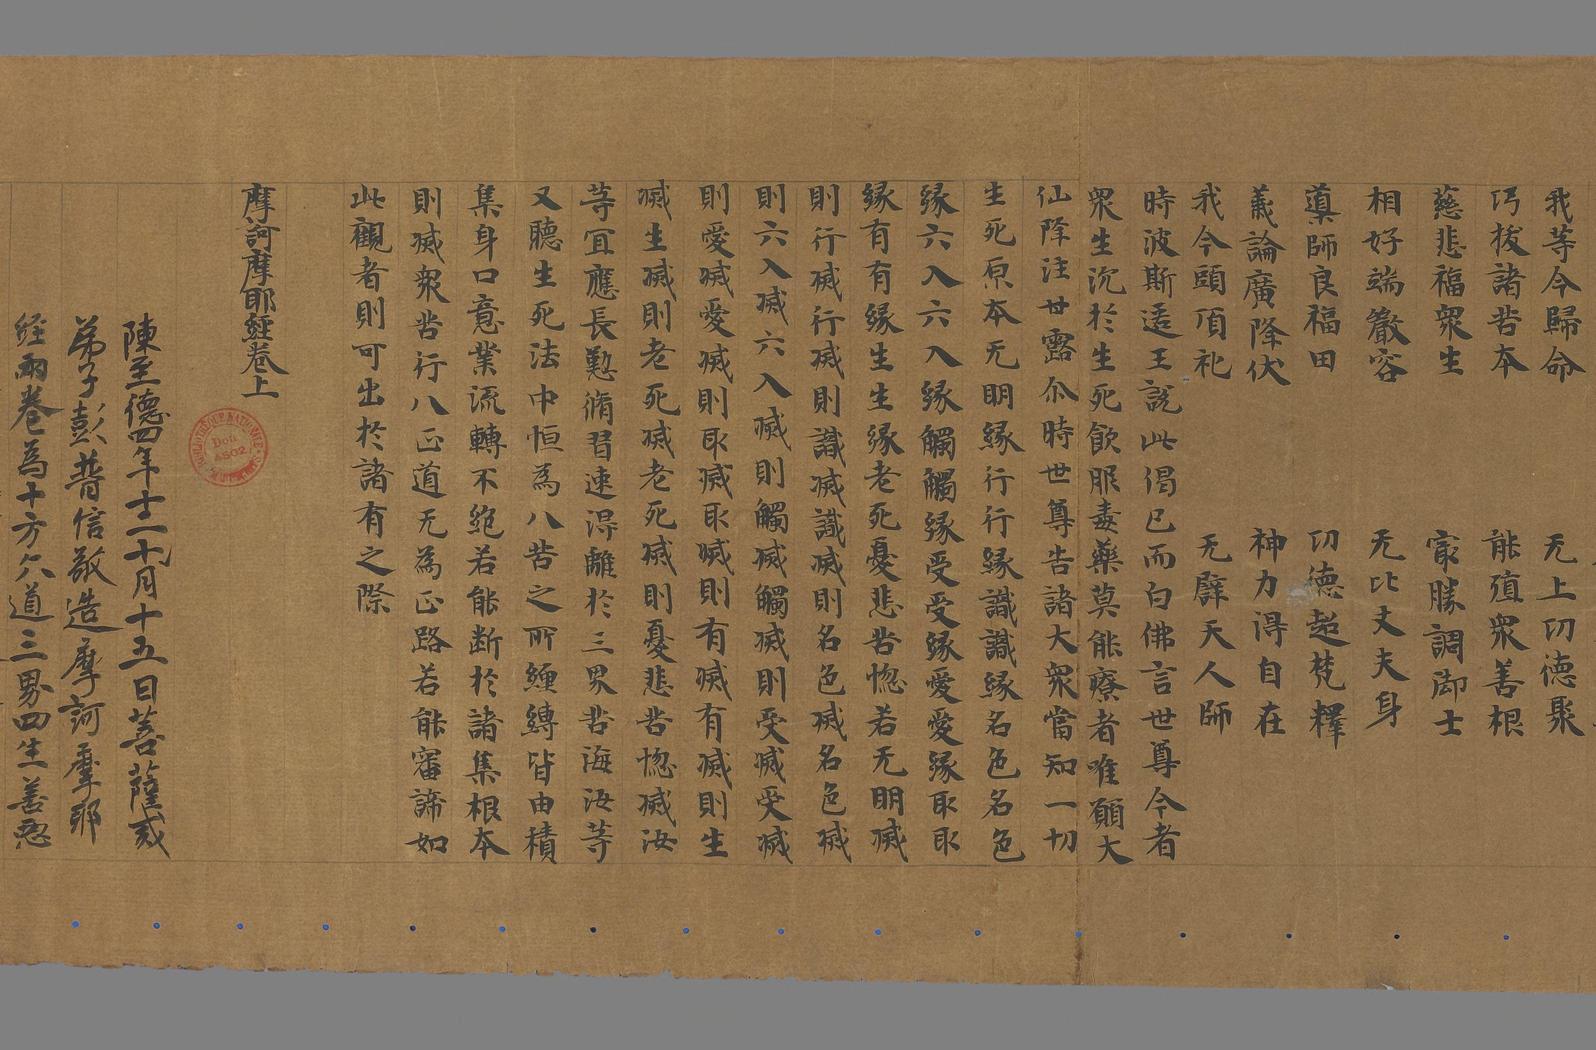 我等今歸命　无上㓛德聚
巧拔諸苦本　能殖衆善根
慈悲福衆生　寂勝調御士
相好端嚴容　无比丈夫身
導師良福田　㓛德超梵釋
義論廣降伏　神力得自在
我今頭頂礼　无譬天人師
時波斯匿王說此偈已而白佛言世尊今者
衆生沉於生死飲服毒藥莫能療者唯願大
仙降注甘露尒時世尊告諸大衆當知一切
生死原本无明緣行行緣識識緣名色名色
緣六入六入緣觸觸緣受受緣愛愛緣取取
緣有有緣生生緣老死憂悲苦惱若无明滅
則行滅行滅則識滅識滅則名色滅名色滅
則六入滅六入滅則觸滅觸滅則受滅受滅
則愛滅愛滅則取滅取滅則有滅有滅則生
滅生滅則老死滅老死滅則憂悲苦惱滅汝
等宜應長懃脩習速得離於三界苦海汝等
又聽生死法中恒為八苦之所纏縛皆由積
集身口意業流轉不絶若能断於諸集根本
則滅衆苦行八正道无為正路若能審諦如
此觀者則可出於諸有之際
摩訶摩耶經卷上
BIBLIOTHÈQUE NATIONALE
Don
4502
MANUSCRITS
陳至德四年十二月十五日菩薩戒
弟子彭普信敬造摩訶摩耶
經兩卷為十方六道三界四生善惡